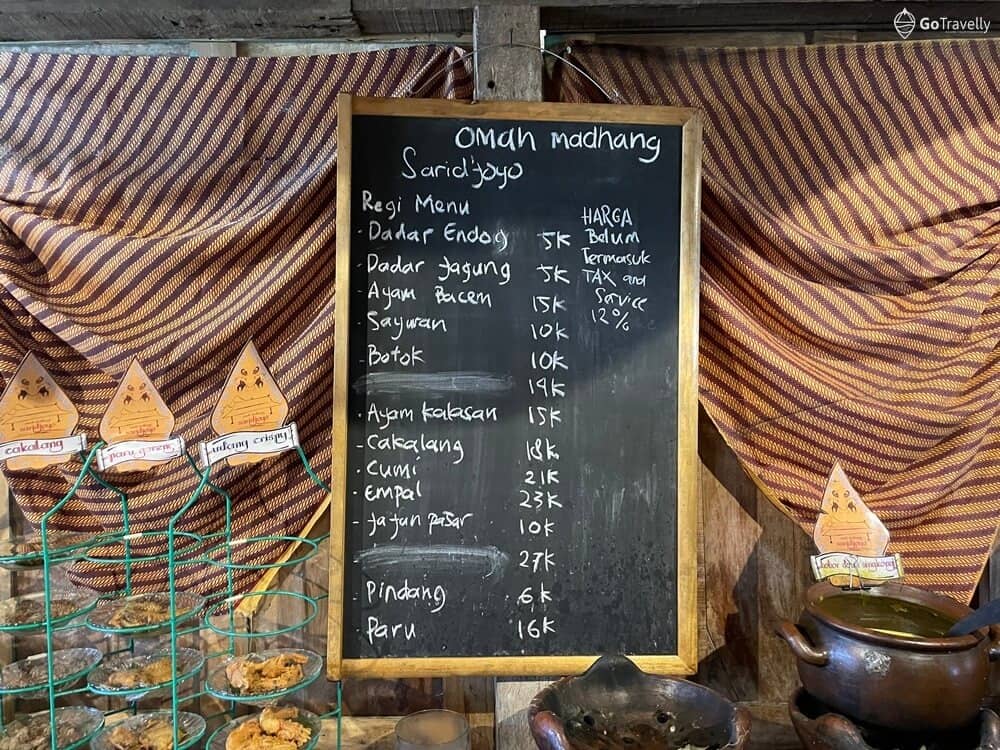 GoTravelly
OMAH madhang
Saridjoyo
Regi Menu
HARGA
Belum
Termasuk
TAX and
Service
12%
- Dadar Endog 5K
- Dadar Jagung 5K
- Ayam Bacem 15K
- Sayuran 10K
- Botok 10K
14K
- Ayam kalasan 15K
- Cakalang 18K
- Cumi 21K
- Empal 23K
- Jajan pasar 10K
27K
- Pindang 6K
Paru 16K
cakalang
paru goreng
crispy